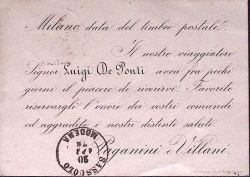 Milano data del timbro postale.
Il nostro viaggiatore
Signor Luigi De Ponti avrà fra pochi
giorni il piacere di riverirvi. Favorite
riservargli l'onore dei vostri comandi
ed aggradite i nostri distinti saluti.
Paganini Villani.
SASSUOLO
20
MODENA